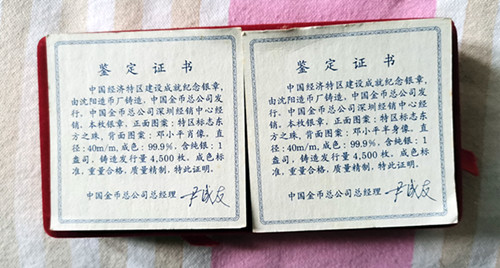 鉴定证书
中国经济特区建设成就纪念银章,
由沈阳造币厂铸造, 中国金币总公司发
行, 中国金币总公司深圳经销中心经
销。本枚银章, 正面图案: 特区标志东
方之珠, 背面图案: 邓小平肖像。直
径: 40m/m, 成色: 99.9%, 含纯银: 1
盎司, 铸造发行量 4,500 枚。成色标
准, 重量合格, 质量精制, 特此证明。
中国金币总公司总经理
鉴定证书
中国经济特区建设成就纪念银章,
由沈阳造币厂铸造, 中国金币总公司发
行, 中国金币总公司深圳经销中心经
销。本枚银章, 正面图案: 特区标志东
方之珠, 背面图案: 邓小平半身像。直
径: 40m/m, 成色: 99.9%, 含纯银: 1
盎司, 铸造发行量 4,500 枚。成色标
准, 重量合格, 质量精制, 特此证明。
中国金币总公司总经理